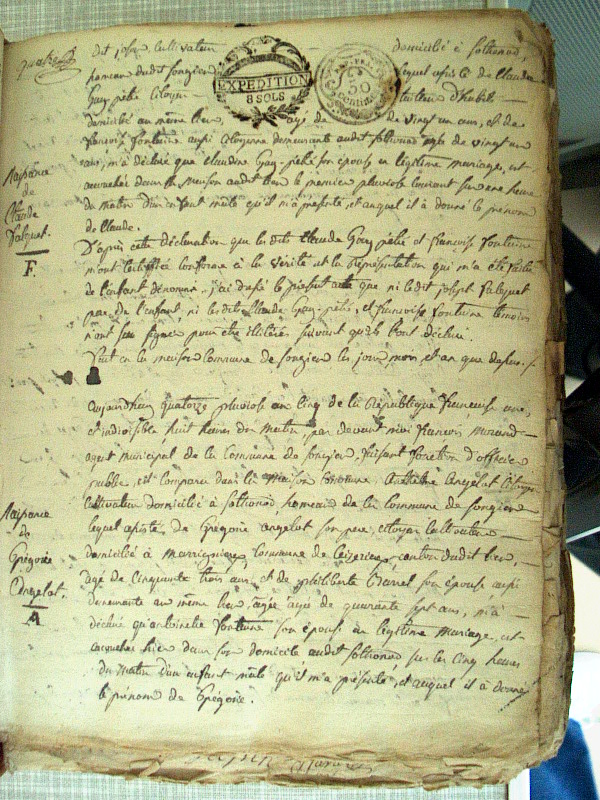 dit jour cultivateur domicilié à Sothonod,
hameau dudit Songieu lequel assisté de Claude
EXPEDITION
8 SOLS
50
Centimes
Gay-pelié Citoyen
domicilié au même lieu, agé de de vingt un ans, et de
françoise fontaine aussi Citoyenne demeurante audit Sothonod agée de vingt un
ans, m'a déclaré que Claudine Gay-pelié son épouse en légitime mariage, est
accouchée dans sa Maison audit lieu le premier pluviose courant sur une heure
du matin d'un enfant mâle qu'il m'a présenté, et auquel il à donné le prénom
de Claude.
D'après cette déclaration que les dits Claude Gay pelié et françoise fontaine
m'ont certifié conforme à la vérité et la Représentation qui m'a été faite
de l'enfant dénommé, j'ai dressé le présent acte que ni ledit joseph Valequet
pere de l'enfant, ni les dits Claude Gay-pelié, et françoise fontaine temoins
n'ont su signer pour être illitérés suivant qu'ils l'ont déclaré.
Fait en la maison Commune de Songieu les jour, mois, et an que dessus.
Naissance
de
Claude
Valequet.
F.
Aujourd'hui quatorze pluviose an cinq de la République françoise une,
et indivisible huit heures du Matin, par devant moi françois Morand
agent municipal de la Commune de Songieu, faisant fonction d'officier
public, est comparu dans la Maison Commune Anthelme Angelot Citoyen
cultivateur domicilié à Sothonod hameau de la Commune de Songieu
lequel assisté de Grégoire angelot son pere, citoyen cultivateur
domicilié à Marrignieu, Commune de Ceizerieu, canton dudit lieu,
agé de Cinquante trois ans, et de philiberte son épouse aussi
demeurante au même lieu, agée de quarante sept ans, m'a
déclaré qu'antoinette fontaine son épouse en légitime Mariage, est
accouchée hier dans son domicile audit Sothonod sur les Cinq heures
du Matin d'un enfant mâle qu'il m'a présenté, et auquel il à donné
le prénom de Grégoire.
Naissance
de
Grégoire
Angelot.
A